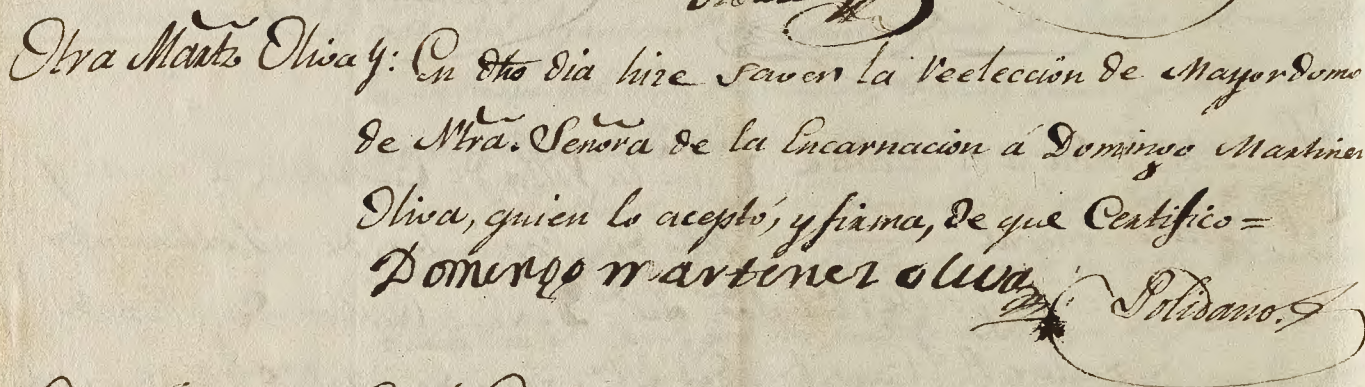 Otra Martz Oliva y: En dho dia hize saver la reelección de Mayordomo
de Ntra. Señora de la Encarnacion á Domingo Martinez
Oliva, quien lo aceptó, y firma, de que Certifico=
Domingo martinez oliva Polidano.